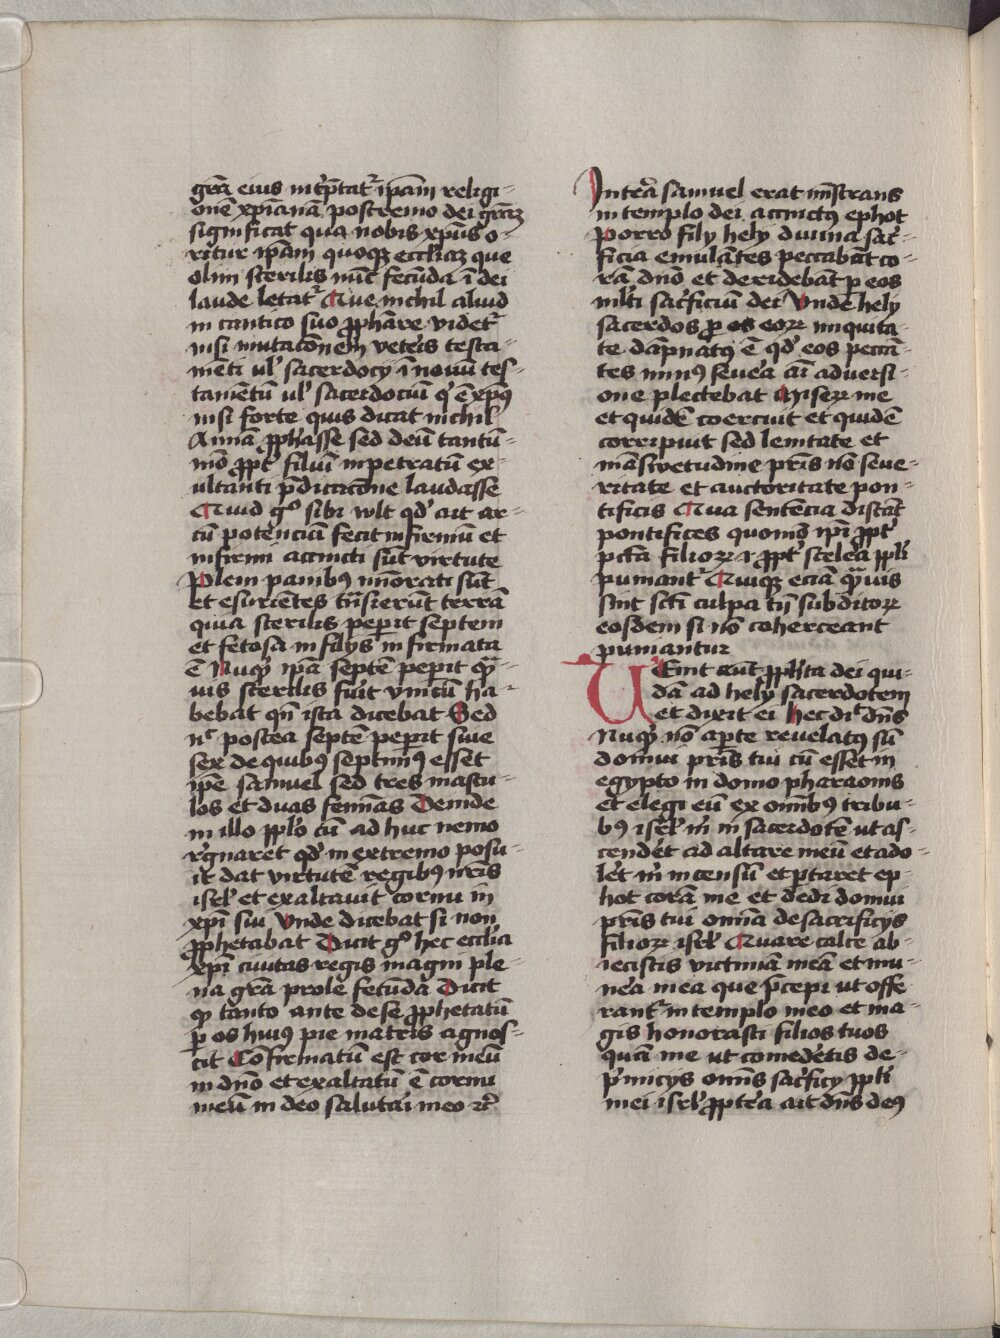 grā eius int̄p̄tat᷑ ip̄am religi-
onē xp̄ianā postremo dei grām
significat qua nobis xp̄us o-
ritur ip̄am quoqꝫ eccl̄iaꝫ que
olim sterilis nūc fecūda ī dei
laude letat᷑ Que nichil aliud
in cantico suo ꝓphāre videt᷑
nisi mutacōnem vetēis testa-
mēti ul̓ sacerdocy ī nouū tes-
tamētū ul̓ sacerdociū qͥ ē xp̄ꝰ
nisi forte quis dicat nichil
Annā ꝓphasse sed deū tantū-
mō ꝓpt̓ filiū inpetratū ex-
ultanti p̄dicacōne laudasse
Quid gͦ sibi wlt qd̓ ait ar-
cū potenciū fecit infirmū et
infirmi accincti sūt virtute
Plem panibꝰ minorati sūt
et esuriētes tn̄sierūt terrā
quia sterilis pep̄it septem
et fetosa in filys infirmata
ē Nūqͥ ip̄a septē pep̄it qͣ-
uis sterilis fuit vnicū ha-
bebat qn̄ ista dicebat Sed
nͨ postea septē pep̄it siue
sex de quibꝰ septimꝰ esset
ip̄e samuel sed tres mascu-
los et duas feminas Deinde
in illo ꝓplo cū ad huc nemo
r̓gnaret qd̓ in extremo posu-
it dat virtutē regibꝰ nr̄is
isrl̓ et exaltauit cornu in
xp̄i sui Vnde dicebat si non
ꝓphetabat Dicit gͦ hec eccl̄ia
xp̄i ciuitas regis magni ple-
na grā prole fecūda Dicit
qͥ tanto ante de se ꝓphetatū
ꝑ os huiꝰ pie matris agnos-
cit Cōfirmatū est cor meū
in dn̄o et exaltatū ē cornu
meū in deo salutāi meo ⁊c̓
Int̓ea samuel erat mīstrans
in templo dei accinctꝰ ephot
Porro fily hely diuina sac̓-
ficia emulātes peccabāt co-
rā dn̄o et deridebāt ꝑ eos
mlti sac̓ficiū dei Vnde hely
sacerdos ꝓ os eoꝝ iniquita-
te dāpnatꝰ ē qd̓ eos peccā-
tes minꝰ seu̓ea aī aduersi-
one plectebat Miseꝝ me
et quidē coercuit et quidē
corripuit sed lenitate et
māswetudine pr̄is nō seue-
ritate et auctoritate pon-
tificis Qua sentēcia distāt
pontifices quomō ip̄i ꝓpt̓
pctā filioꝝ ⁊ ꝓpt̓ scelēa ꝓpl̓i
puniant᷑ Quiqꝫ eciā qͣuis
sint sctī culpa tn̄ subditoꝝ
eosdem si nō coherceant
puniantur
UEnit aut̄ ꝓph̄ta dei qui-
dā ad hely sacerdotem
et dixit ei hec di᷑ dn̄s
Nūqͥ nō aꝑte reuelatꝰ sū
domui pr̄is tui cū esset in
egypto in domo pharaonis
et elegi eū ex omībꝰ tribu-
bꝰ isrl̓ m̄ in sacerdotē ut as-
cendēt ad altare meū et ado-
lēt m̄ incensū et portaret ep-
hot corā me et dedi domui
pr̄is tui omnia de sacrificys
filioꝝ isrl̓ Quare calce ab-
iecistis victimā meā et mu-
nēa mea que p̄cepi ut offe
rant᷑ in templo meo et ma-
gis honorasti filios tuos
quā me ut comedetis de-
pͥmicys om̄s sac̓ficy ꝓpl̓i
mei isrl̓ ꝓpt̓ea ait dn̄s deꝰ